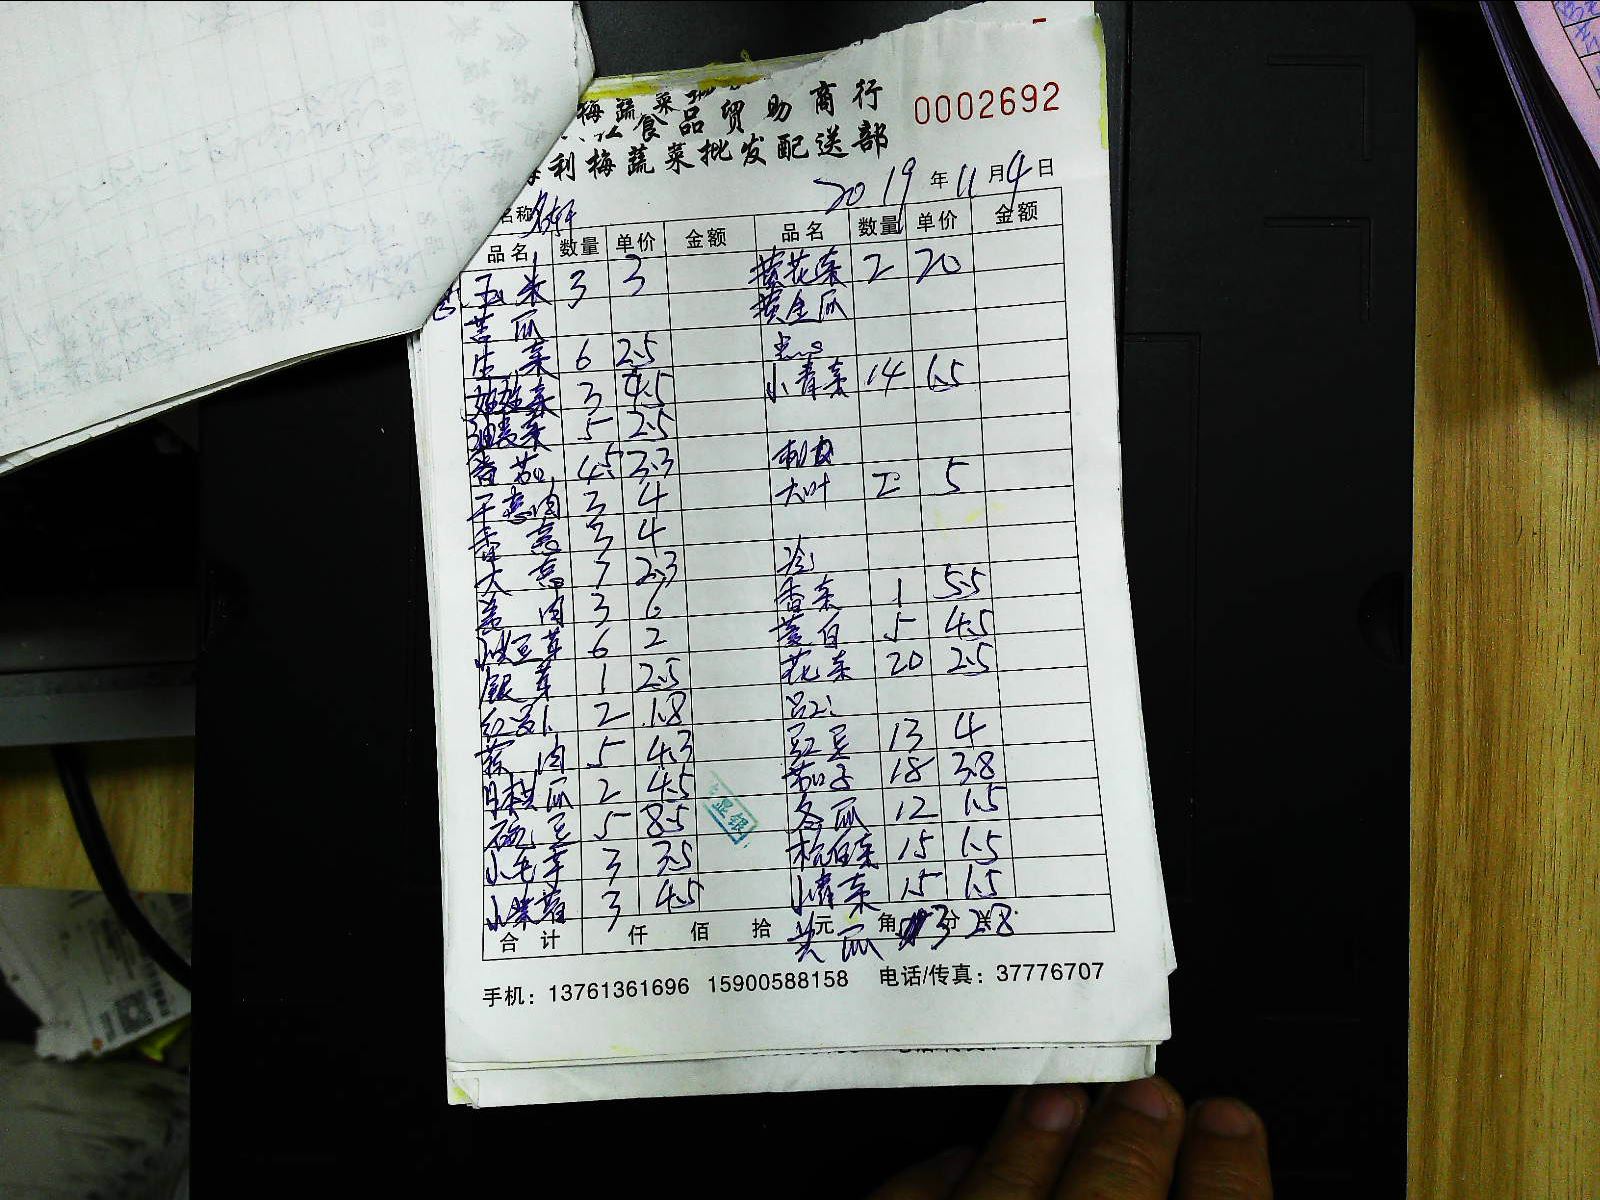 梅蔬菜
食品贸助商行
0002692
利梅蔬菜批发配送部
2019年11月4日
名称
品名 数量 单价 金额 品名 数量 单价 金额
玉米 3 3 黄花菜 2 20
苦瓜 黄金瓜
生菜 6 2.5
娃娃菜 3 4.5 小青菜 14 6.5
油麦菜 5 2.5
番茄 4.5 3.3
干葱肉 3 4 大叶 2 5
香葱 3 4
大葱 7 2.3
姜肉 3 6 香菜 1 5.5
豆芽 6 2 茭白 5 4.5
银芽 1 2.5 花菜 20 2.5
2 1.8
蒜肉 5 4.3 豇豆 13 4
日本黄瓜 2 4.5 茄子 18 3.8
豌豆 5 8.5 冬瓜 12 1.5
小毛芋 3 3.5 杭白菜 15 1.5
小紫薯 3 4.5 小青菜 15 1.5
合计 仟 佰 拾 元 角 分 ¥:
黄瓜 3 2.8
手机：13761361696 15900588158 电话/传真：37776707
显银